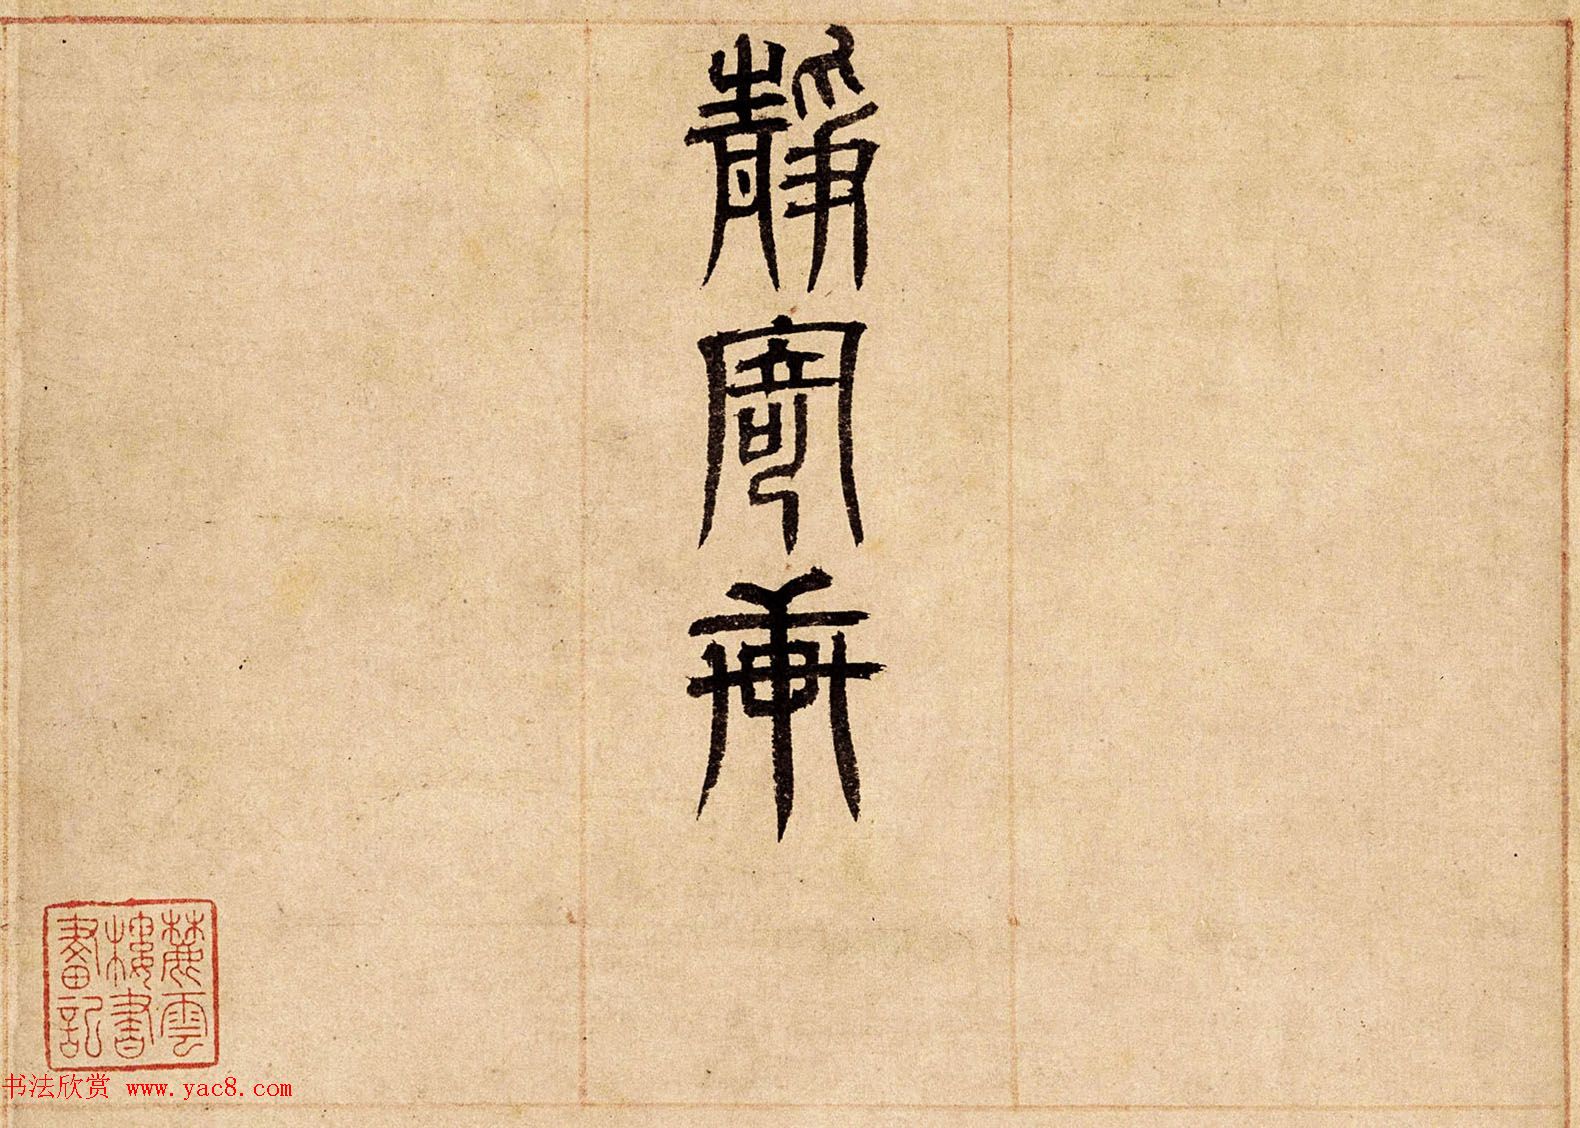 靜寄軒
麓雲
樓書
畫記
书法欣赏 www.yac8.com